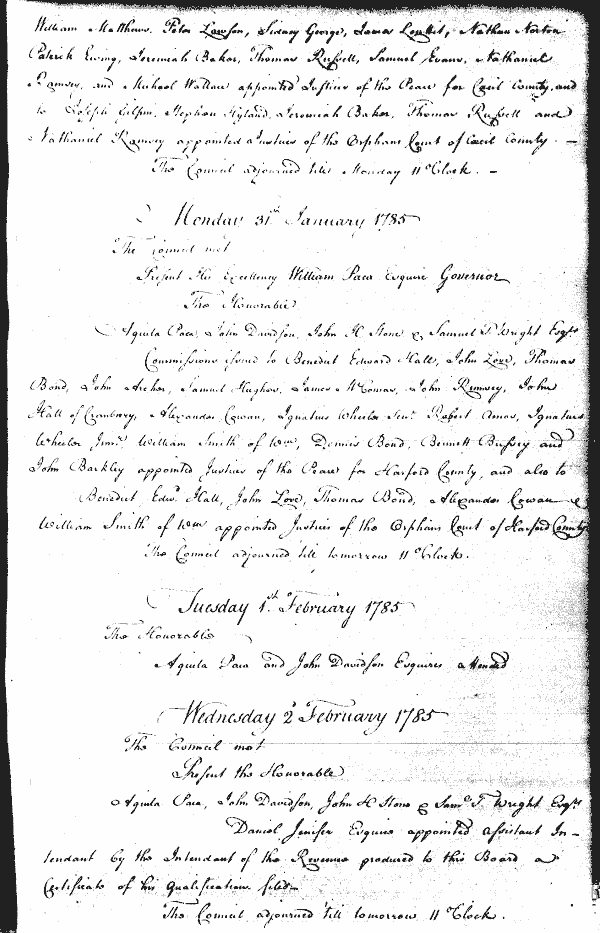 William Matthews, Peter Lawson, Sidney George, James Louttit, Nathan Norton
Patrick Ewing, Jeremiah Baker, Thomas Russell, Samuel Evans, Nathaniel
Ramsey, and Michael Wallace appointed Justices of the Peace for Cecil County, and
to Joseph Gilpin, Stephen Hyland, Jeremiah Baker, Thomas Russell and
Nathaniel Ramsey appointed Justices of the Orphans Court of Cecil County. —
The Council adjourned till Monday 11 oClock. —
Monday 31st January 1785
The Council met
Present His Excellency William Paca Esquire Governor
The Honorable
Aquila Paca, John Davidson, John H Stone & Samuel T. Wright Esqrs
Commissions issued to Benedict Edward Hall, John Love, Thomas
Bond, John Archer, Samuel Hughes, James McComas, John Rumsey, John
Hall of Cranberry, Alexander Cowan, Ignatius Wheeler Senr. Robert Amos, Ignatius
Wheeler Junr. William Smith of Wm, Dennis Bond, Bennett Bussey and
John Barkley appointed Justices of the Peace for Harford County, and also to
Benedict Edwd. Hall, John Love, Thomas Bond, Alexander Cowan &
William Smith of Wm appointed Justices of the Orphans Court of Harford County
The Council adjourned till tomorrow 11 oClock.
Tuesday 1st. February 1785
The Honorable
Aquila Paca and John Davidson Esquires attended
Wednesday 2d February 1785
The Council met
Present the Honorable
Aquila Paca, John Davidson, John H Stone & Saml T. Wright Esqrs
Daniel Jenifer Esquire appointed assistant In-
tendant by the Intendant of the Revenue produced to this Board a
Certificate of his Qualification filed
The Council adjourned till tomorrow 11 oClock.